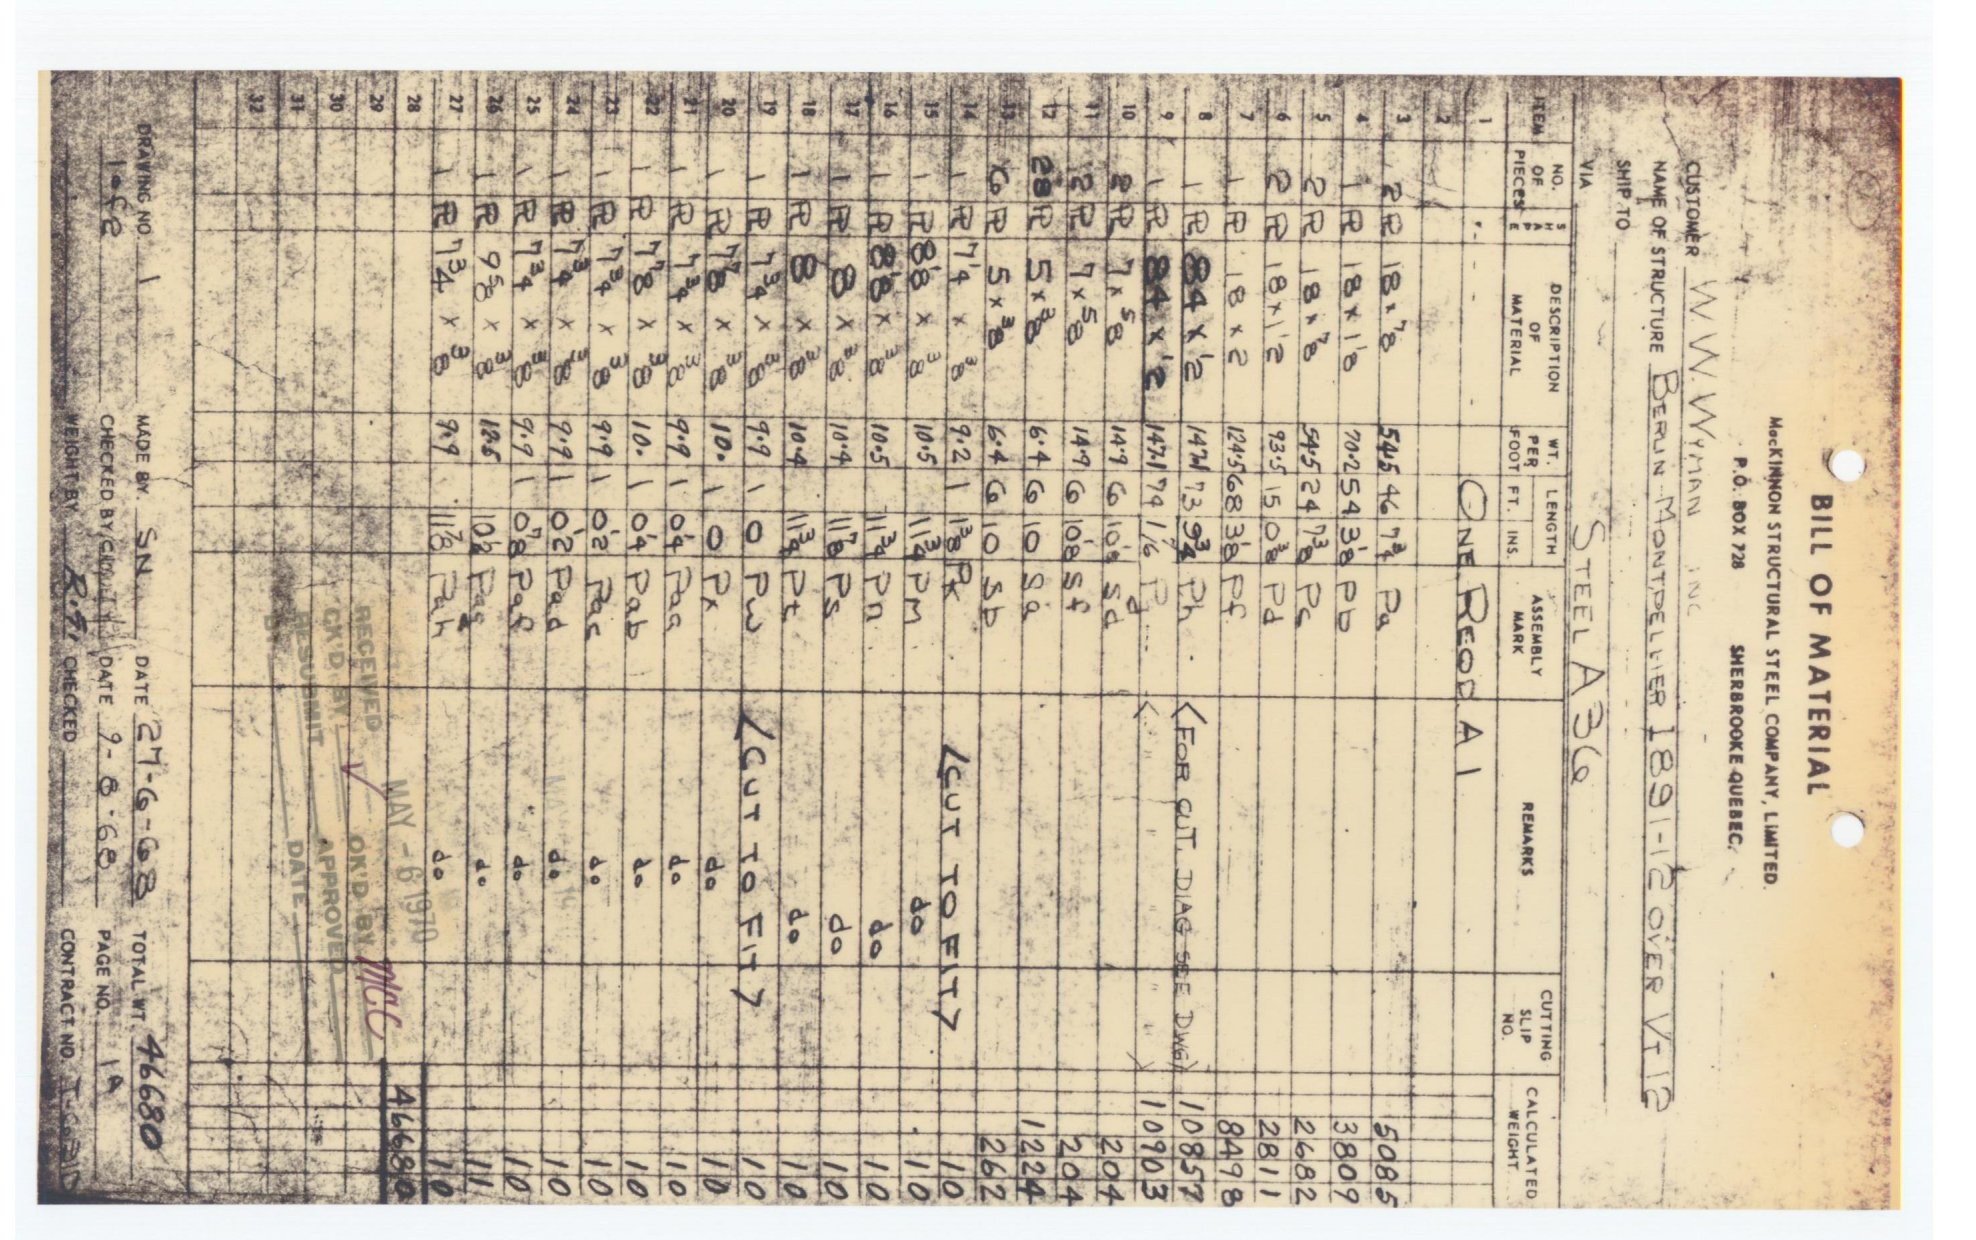 BILL OF MATERIAL
MacKINNON STRUCTURAL STEEL COMPANY, LIMITED.
P.O. BOX 728 SHERBROOKE QUEBEC.
CUSTOMER W.W. WYMAN INC.
NAME OF STRUCTURE BERLIN-MONTPELLIER 1891-12 OVER VT 12
SHIP TO
VIA STEEL A36
ITEM NO. OF PIECES SHAPE DESCRIPTION OF MATERIAL WT. PER FOOT LENGTH FT. INS. ASSEMBLY MARK REMARKS CUTTING SLIP NO. CALCULATED WEIGHT
1 ONE REQD. A1
2
3 2 PL 18 x 7/8 54.5 46 7 3/4 Pa 5085
4 1 PL 18 x 1 1/8 70.2 54 3 1/8 Pb 3809
5 2 PL 18 x 7/8 54.5 24 7 3/8 Pc 2682
6 2 PL 18 x 1 1/2 93.5 15 0 3/8 Pd 2811
7 1 PL 18 x 2 124.5 68 3 1/8 Pf 8498
8 1 PL 84 x 1/2 147.1 73 9 3/4 Ph <FOR CUT. DIAG SEE DWG> 10857
9 1 PL 84 x 1/2 147.1 74 1 1/6 < " " " > 10903
10 2 PL 7 x 5/8 14.9 6 10 1/8 Sd 204
11 2 PL 7 x 5/8 14.9 6 10 1/8 Sf 204
12 28 PL 5 x 3/8 6.4 6 10 Sa 1224
13 6 PL 5 x 3/8 6.4 6 10 Sb 262
14 1 PL 7 1/4 x 3/8 9.2 1 1 3/8 Pk <CUT TO FIT> 10
15 1 PL 8 1/8 x 3/8 10.5 11 3/4 Pm do 10
16 1 PL 8 1/8 x 3/8 10.5 11 3/4 Pn do 10
17 1 PL 8 x 3/8 10.4 11 7/8 Ps do 10
18 1 PL 8 x 3/8 10.4 11 3/4 Pt do 10
19 1 PL 7 3/4 x 3/8 9.9 1 0 Pw <CUT TO FIT> 10
20 1 PL 7 7/8 x 3/8 10. 1 0 Px do 10
21 1 PL 7 3/4 x 3/8 9.9 1 0 1/4 Paa do 10
22 1 PL 7 7/8 x 3/8 10. 1 0 1/4 Pab do 10
23 1 PL 7 3/4 x 3/8 9.9 1 0 1/2 Pac do 10
24 1 PL 7 3/4 x 3/8 9.9 1 0 1/2 Pad do 10
25 1 PL 7 3/4 x 3/8 9.9 1 0 7/8 Paf do 10
26 1 PL 9 5/8 x 3/8 12.5 10 1/2 Pag do 11
27 1 PL 7 3/4 x 3/8 9.9 11 7/8 Pah do 10
28 46680
29
30
31
32
MAY - 6 1970
RECEIVED
CK'D BY OK'D BY MCC
RESUBMIT APPROVED
BY DATE
DRAWING NO. 1 MADE BY. SN. DATE 27-6-68 TOTAL WT. 46680
1 of 2 CHECKED BY DATE 9-8-68 PAGE NO. 1A
WEIGHT BY R.T. CHECKED CONTRACT NO.